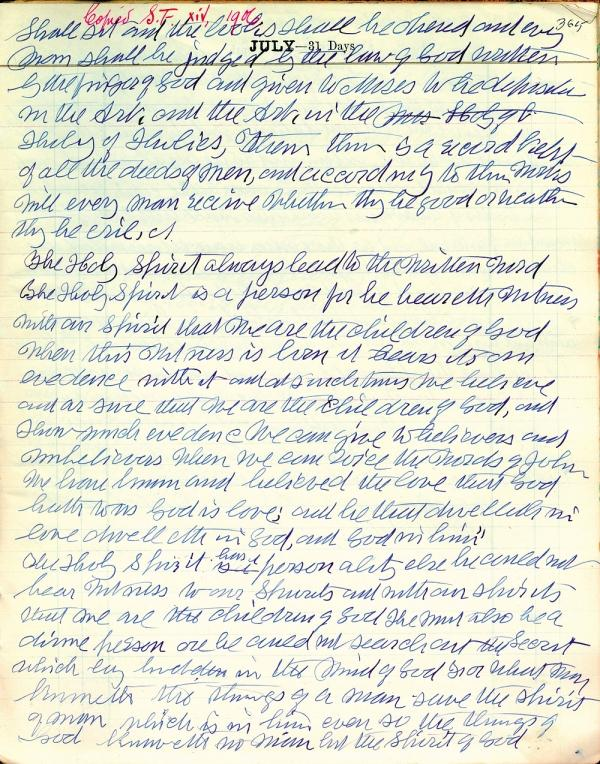 Copied S.T. xiv, 1906
365
Shall sit and the books shall be opened and every
JULY—31 Days
man shall be judged by the law of God written
by the finger of God and given to Moses to be deposited
in the Ark, and the Ark in the Holy of
Holy of Holies, there is a record kept
of all the deeds of men, and according to their works
will every man receive whether they be good or whether
they be evil,
The Holy Spirit always lead to the written word
The Holy Spirit is a person for he beareth witness
with our Spirit that we are the children of God
when this witness is born it bears its own
evidence with it and at such times we believe
and are sure that we are the children of God, and
how much evidence we can give to believers and
unbelievers when we can voice the words of John
We have known and believed the love that God
hath to us God is love; and he that dwelleth in
love dwelleth in God, and God in him;
The Holy Spirit has a personality else he could not
bear witness to our Spirits and with our spirits
that we are the children of God He must also be a
divine person or he could not search out the Secret
which lay hidden in the mind of God for what man
knoweth the things of a man save the spirit
of man which is in him even so the things of
God knoweth no man but the Spirit of God